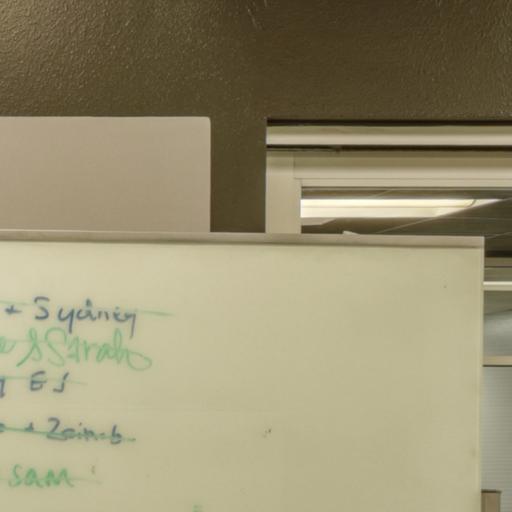 + Sydney
& Sarah
EJ
+ Zainab
sam